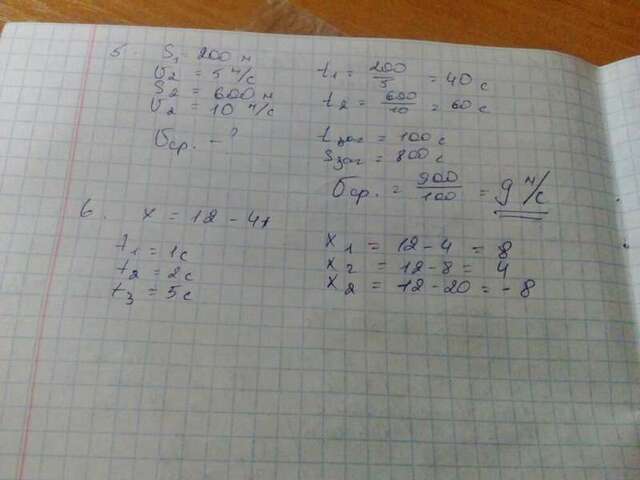 5. S₁ = 200 м
υ₂ = 5 м/с
S₂ = 600 м
υ₂ = 10 м/с
υср. – ?
t₁ = 200/5 = 40 с
t₂ = 600/10 = 60 с
tзаг = 100 с
Sзаг = 800 с
υср. = 900/100 = 9 м/с
6. x = 12 - 4t
t₁ = 1с
t₂ = 2с
t₃ = 5с
x₁ = 12 - 4 = 8
x₂ = 12 - 8 = 4
x₂ = 12 - 20 = - 8